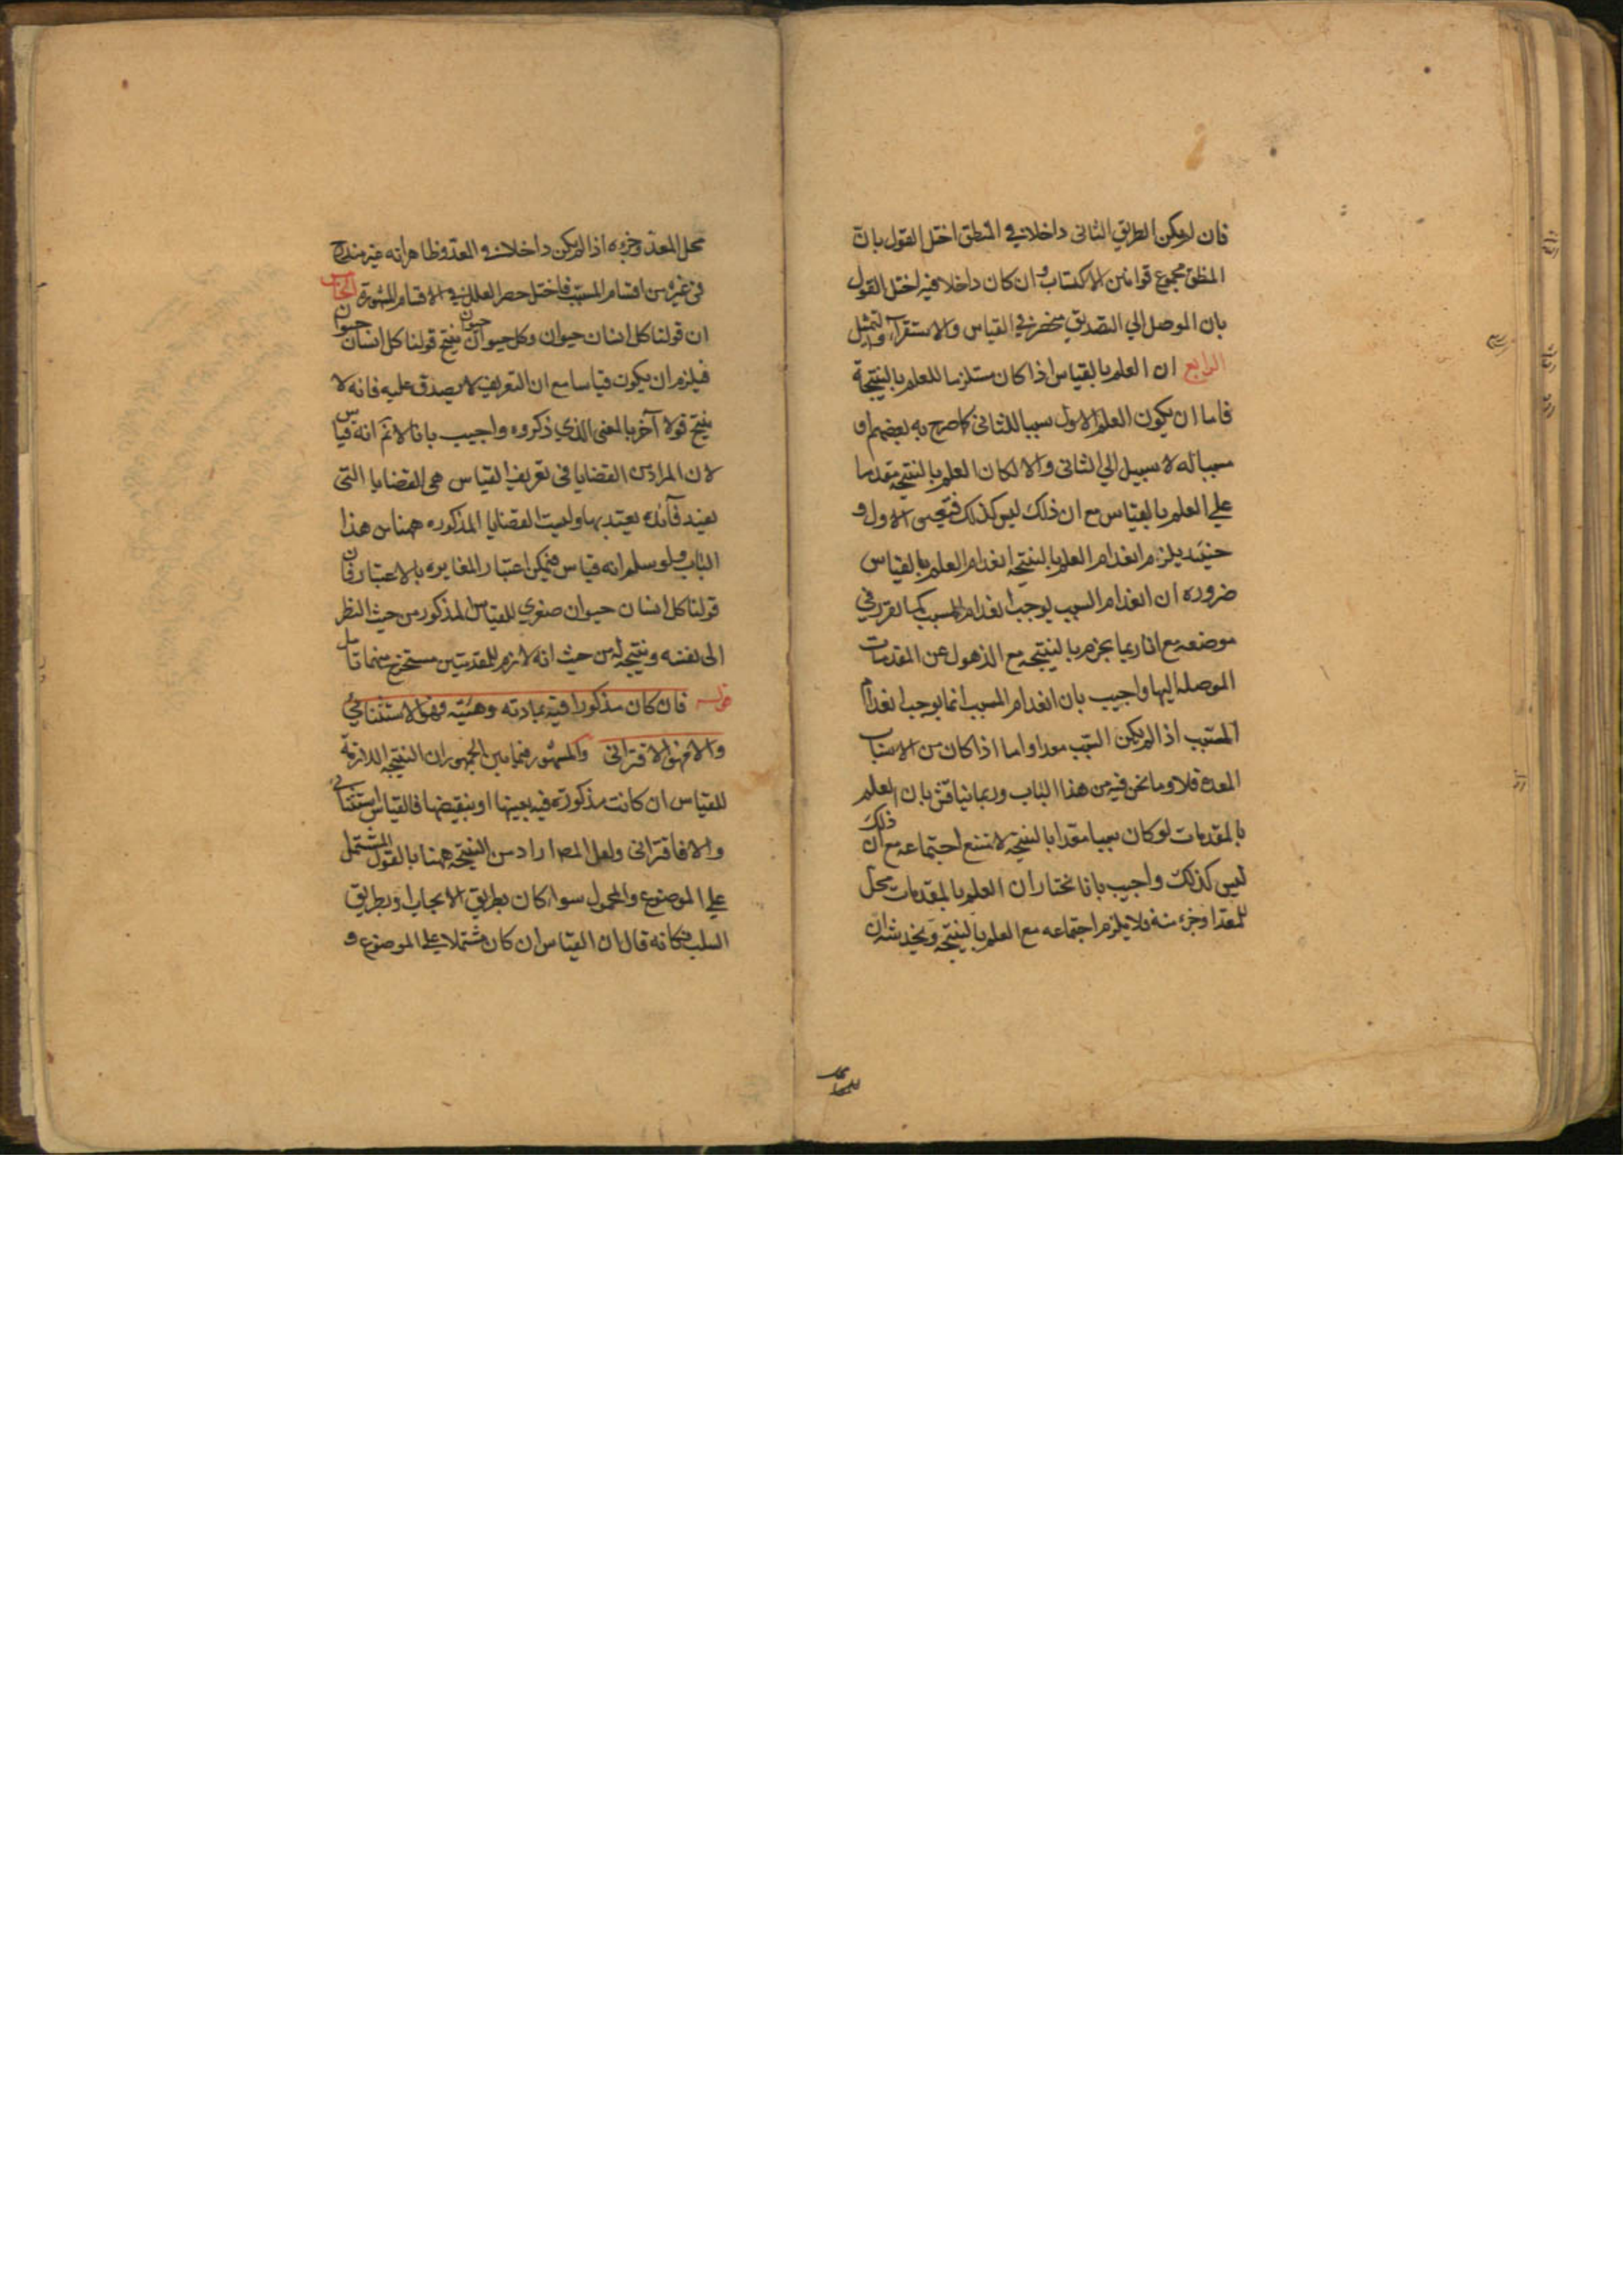 فان لم يكن الطريق الثانى داخلا فى المنطق اختل القول بان
المنطق مجموع قوانين الاكتساب وان كان داخلا فيه اختل القول
بان الموصل الي التصديق منحصر في القياس والاستقراء والتمثيل
الرابع ان العلم بالقياس اذا كان مستلزما للعلم بالنتيجة
فاما ان يكون العلم الاول سببا للثانى كما صرح به بعضهم او
مسببا له لا سبيل الي الثانى والا لكان العلم بالنتيجه مقدما
علي العلم بالقياس مع ان ذلك ليس كذلك فتعين الاول و
حينئد يلزم انعدام العلم بالنتيجه انعدام العلم بالقياس
ضروره ان انعدام السبب يوجب انعدام المسبب كما تقرر في
موضعه مع انا ربما نجزم بالنتيجه مع الذهول عن المقدمات
الموصله اليها واجيب بان انعدام السبب انما يوجب انعدام
المسبب اذا لم يكن السبب معدا واما اذا كان من الاسباب
المعده فلا وما نحن فيه من هذا الباب وربما يناقش بان العلم
بالمقدمات لو كان سببا معدا بالنتيجة لامتنع اجتماعه مع ان ذلك
ليس كذلك واجيب بانا نختار ان العلم بالمقدمات محل
للمعد او جزء منه فلا يلزم اجتماعه مع العلم بالنتيجه ويخدشه ان
محل المعد وجزءه اذا لم يكن داخلا فى المعد وظاهر انه غير مندرج
فى غيره من اقسام المسبب فاختل حصر العلل فى الاقسام المشهورة الخامس
ان قولنا كل انسان حيوان وكل حيوان حيوان ينتج قولنا كل انسان حيوان
فيلزم ان يكون قياسا مع ان التعريف لا يصدق عليه فانه لا
ينتج قولا آخر بالمعنى الذي ذكروه واجيب بانا لا نم انه قياس
لان المراد من القضايا فى تعريف القياس هى القضايا التى
يفيد فائده يعتد بها وليست القضايا المذكوره ههنا من هذا
الباب ولو سلم انه قياس فيمكن اعتبار المغايره بالاعتبار فان
قولنا كل انسان حيوان صغرى للقياس المذكور من حيث النظر
الى نفسه ونتيجه له من حيث انه لازم للمقدمتين مستخرج منهما تامل
قوله فان كان مذكورا فيه بمادته وهيئته فهو الاستثنائى
والا فهو الاقترانى والمشهور فيما بين الجمهور ان النتيجه اللازمة
للقياس ان كانت مذكورة فيه بعينها او بنقيضها فالقياس استثنائى
والا فاقترانى ولعل المص اراد من النتيجه ههنا بالقول المشتمل
علي الموضوع والمحمول سواء كان بطريق الايجاب او بطريق
السلب فكانه قال ان القياس ان كان مشتملا على الموضوع و